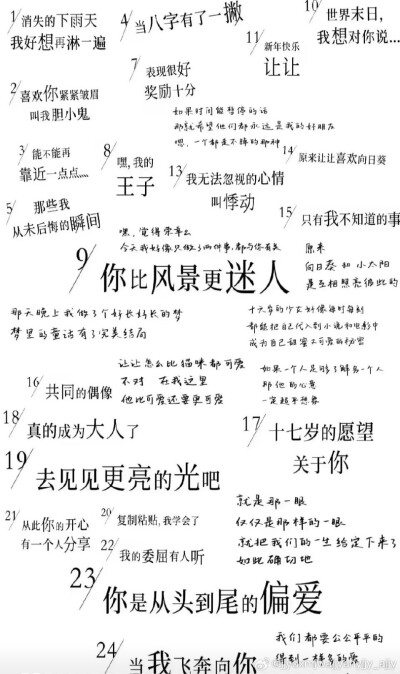 1 消失的下雨天
我好想再淋一遍
4 当八字有了一撇
10 世界末日，
我想对你说....
11 新年快乐
让让
7 表现很好
奖励十分
2 喜欢你紧紧皱眉
叫我胆小鬼
如果时间能暂停的话
那就希望他们都永远是我的好朋友
嗯，一个都是不掉的那种
3 能不能再
靠近一点点....
8 嘿，我的
王子
14 原来让让喜欢向日葵
13 我无法忽视的心情
叫悸动
5 那些我
从未后悔的瞬间
15 只有我不知道的事
嘿，觉得荣幸么
今天我好像只做了两件事，都与你有关
原来
向日葵和小太阳
是互相照亮彼此的
9 你比风景更迷人
那天晚上我做了个好长好长的梦
梦里的童话有了完美结局
十六岁的少女好像每时每刻
都能把自己代入到小说和电影中
成为自己甜蜜不可爱的秘密
让让怎么比猫咪都可爱
不对 在我这里
他比可爱还要更可爱
如果一个人足够了解另一个人
那他的心意
一定超乎想象
16 共同的偶像
18 真的成为大人了
17 十七岁的愿望
关于你
19 去见见更亮的光吧
就是那一眼
仅仅是那样的一眼
就把我们的一生给定下来了
如此确切地
21 从此你的开心
有一个人分享
20 复制粘贴，我学会了
22 我的委屈有人听
23 你是从头到尾的偏爱
我们都要公公平平的
得到一样多的爱
24 当我飞奔向你